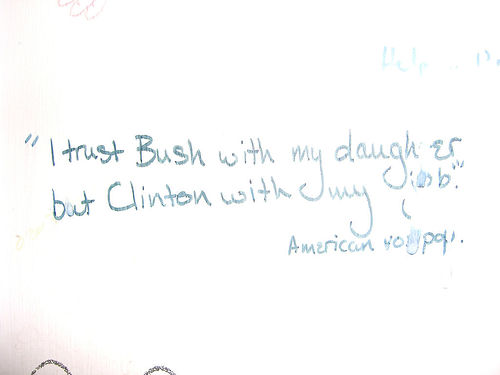 Help
"I trust Bush with my daughter
but Clinton with my job."
American vox pop.